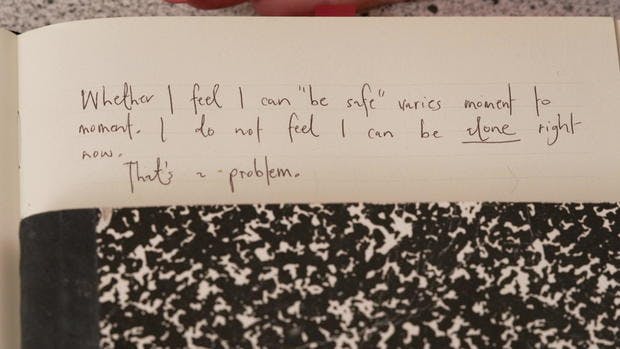 Whether I feel I can "be safe" varies moment to
moment. I do not feel I can be alone right
now.
That's a problem.